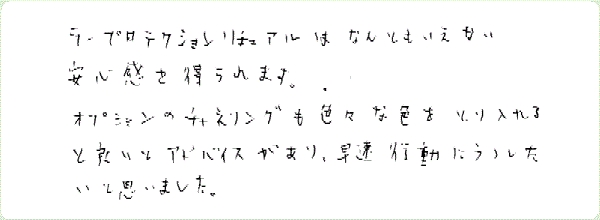 ラー プロテクションリチュアルは なんともいえない
安心感を得られます。
オプションのチャネリングも色々な色をとり入れる
と良いとアドバイスがあり、早速行動にうつした
いと思いました。